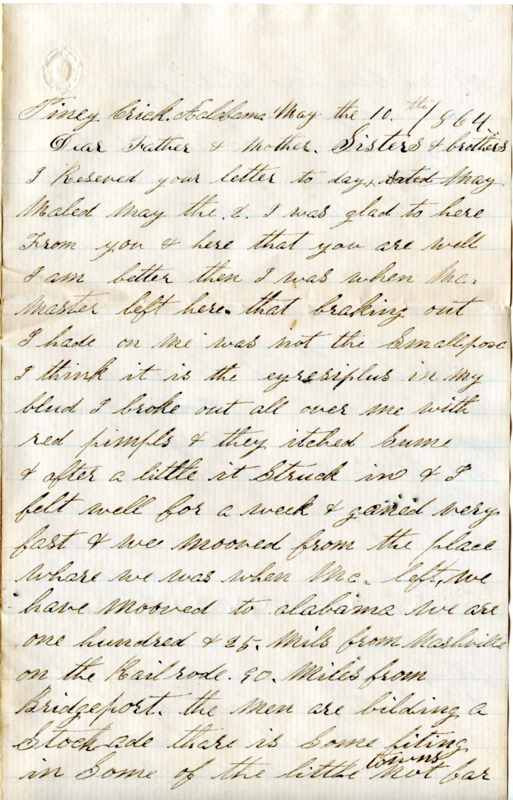 Piney Crick. Alabama May the 10.th/1864.
Dear Father & Mother. Sisters & brothers
I Reseved your letter to day, dated May
Maled May the 2. I was glad to here
From you & here that you are well
I am better then I was when Mc.
Master left here. that braking out
I hade on me was not the Smallpox
I think it is the eyresiplus in my
blud I broke out all over me with
red pimpls & they itched Sume
& after a little it Struck in & I
felt well for a week & gained very
fast & we mooved from the place
whare we was when Mc. left, we
have mooved to alabama we are
one hundred & 25. Mils from Nashville
on the Railrode. 90. Miles from
Bridgeport. the men are bilding a
Stockade thare is Some fiting
in Some of the little towns not far